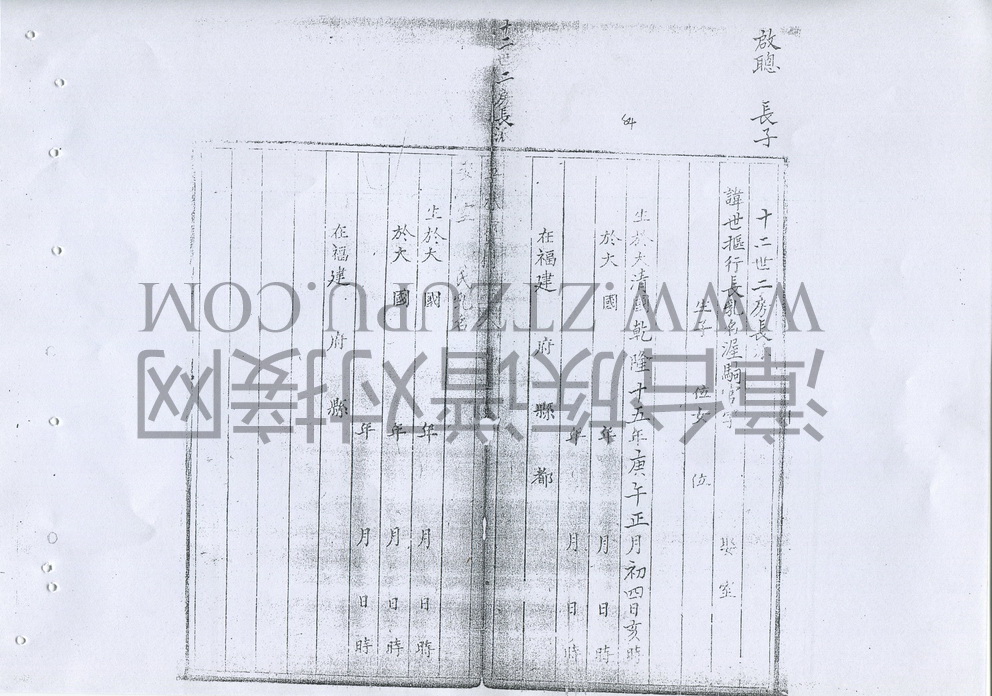 啟聰 長子
十二世二房長
諱世樞行長乳名渥駉官字 娶 室
生子 位女 位
生於大清國乾隆十五年庚午正月初四日亥時
於大 國 年 月 日 時
年 月 日 時
在福建 府 縣 都
十二世二房長派
氏乳名
生於大 國 年 月 日 時
於大 國 年 月 日 時
年 月 日 時
在福建 府 縣
WWW.ZTZUPU.COM
漳台族谱对接网